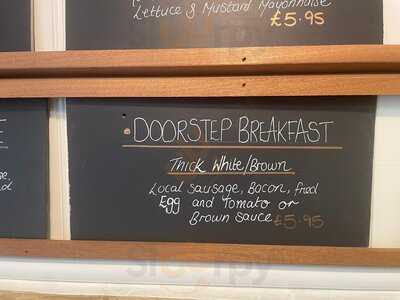 Lettuce & Mustard Mayonnaise
£5.95
DOORSTEP BREAKFAST
Thick White/Brown
Local Sausage, Bacon, fried
Egg and Tomato or
Brown Sauce £5.95